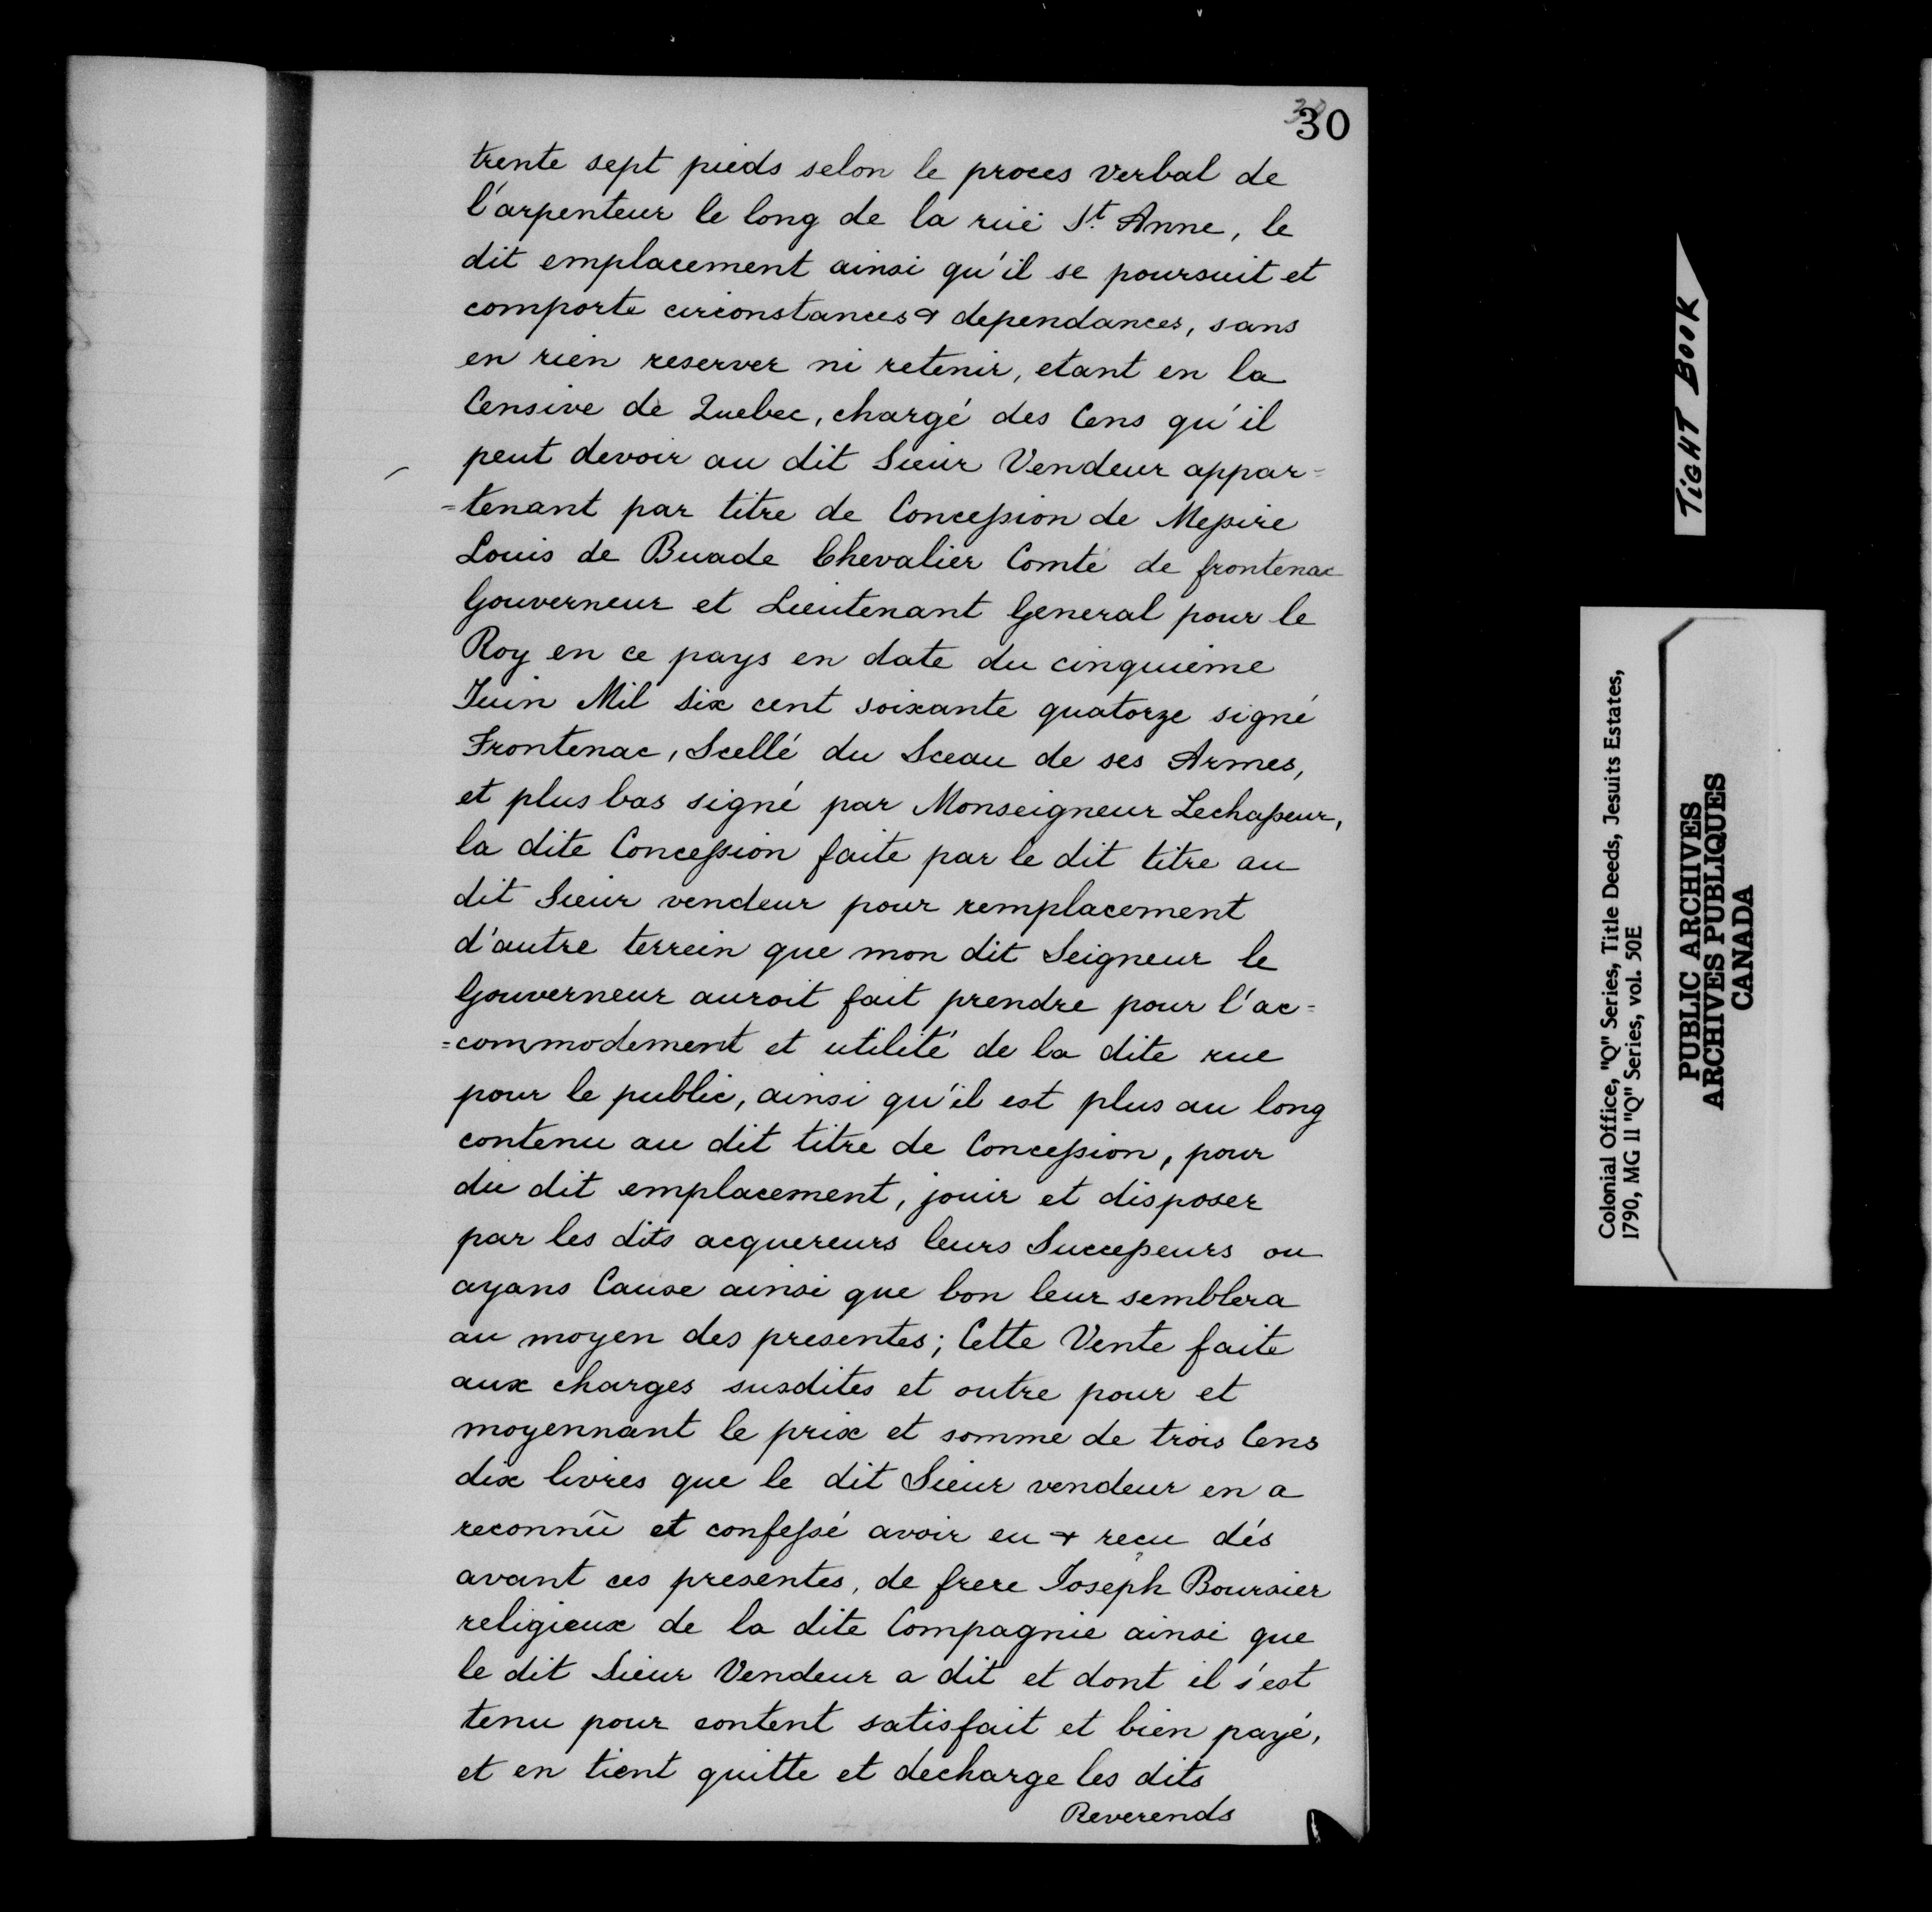 30
trente sept pieds selon le proces verbal de
l'arpenteur le long de la ruë St. Anne, le
dit emplacement ainsi qu'il se poursuit et
comporte circonstances & dependances, sans
en rien reserver ni retenir, etant en la
Censive de Quebec, chargé des Cens qu'il
peut devoir au dit Sieur Vendeur appar=
=tenant par titre de Conceſsion de Meſsire
Louis de Buade Chevalier Comte de frontenac
Gouverneur et Lieutenant General pour le
Roy en ce pays en date du cinquieme
Juin Mil Six cent soixante quatorze signé
Frontenac, Scellé du Sceau de ses Armes,
et plus bas signé par Monseigneur Lechaſseur,
la dite Conceſsion faite par le dit titre au
dit Sieur vendeur pour remplacement
d'autre terrein que mon dit Seigneur le
Gouverneur auroit fait prendre pour l'ac=
=commodement et utilité de la dite rue
pour le public, ainsi qu'il est plus au long
contenu au dit titre de Conceſsion, pour
du dit emplacement, jouir et disposer
par les dits acquereurs leurs Succeſseurs ou
ayans Cause ainsi que bon leur semblera
au moyen des presentes; Cette Vente faite
aux charges susdites et outre pour et
moyennant le prix et somme de trois Cens
dix livres que le dit Sieur vendeur en a
reconnû et confeſsé avoir eu & reçu dés
avant ces presentes, de frere Joseph Boursier
religieux de la dite Compagnie ainsi que
le dit Sieur Vendeur a dit et dont il s'est
tenu pour content satisfait et bien payé,
et en tient quitte et decharge les dits
Reverends
TIGHT BOOK
Colonial Office, "Q" Series, Title Deeds, Jesuits Estates,
1790, MG 11 "Q" Series, vol. 50E
PUBLIC ARCHIVES
ARCHIVES PUBLIQUES
CANADA